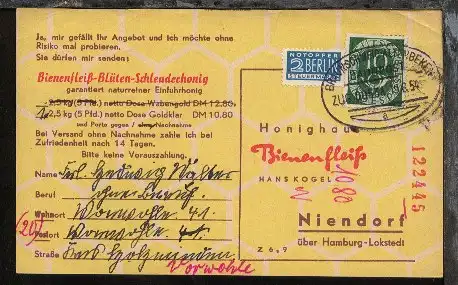 Ja, mir gefällt Ihr Angebot und ich möchte ohne
Risiko mal probieren.
Sie dürfen mir senden:
Bienenfleiß-Blüten-Schleuderhonig
garantiert naturreiner Einfuhrhonig
2,5 kg (5 Pfd.) netto Dose Wabengold DM 12.80
2,5 kg (5 Pfd.) netto Dose Goldklar DM 10.80
und Porto gegen / ohne Nachnahme
Bei Versand ohne Nachnahme zahle ich bei
Zufriedenheit nach 14 Tagen.
Bitte keine Vorauszahlung.
Name Frl. Hedwig Walter
Beruf ohne Beruf.
Wohnort Vorwohle 41.
(20) Postort Vorwohle 41
Straße Kreis Holzminden
Vorwohle
NOTOPFER
2 BERLIN
STEUERMARKE
10
Honighaus
Bienenfleiß
HANS KOGEL
1080
Niendorf
über Hamburg-Lokstedt
Z 6,9
122445